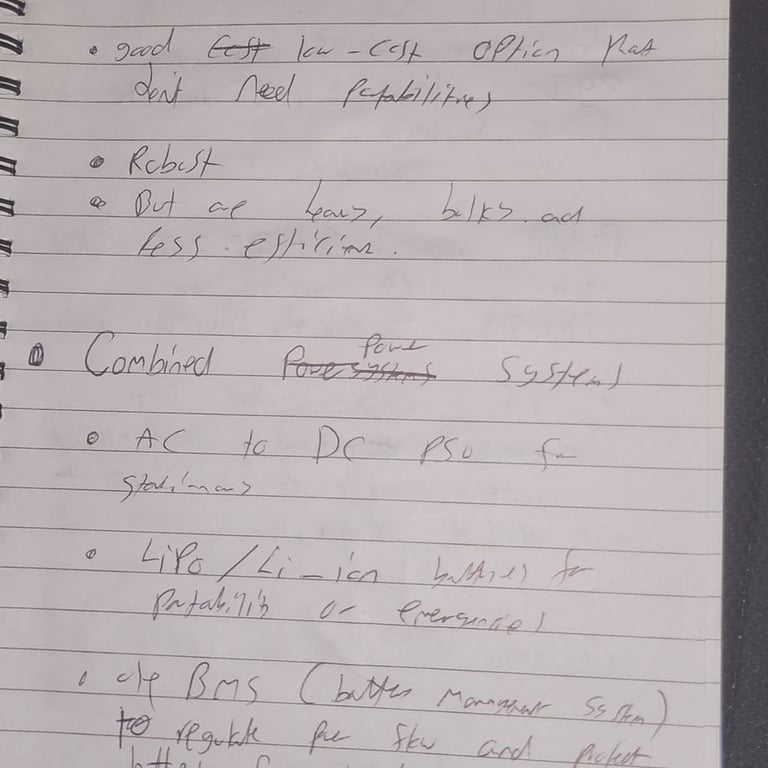 • good low-cost option that
don't need portabilities
• Robust
• But are heavy, bulky and
less efficient.
Combined Power Systems
• AC to DC PSU for
stationary
• LiPo / Li-ion batteries for
portability or emergencies
• BMS (battery management system)
to regulate flow and protect